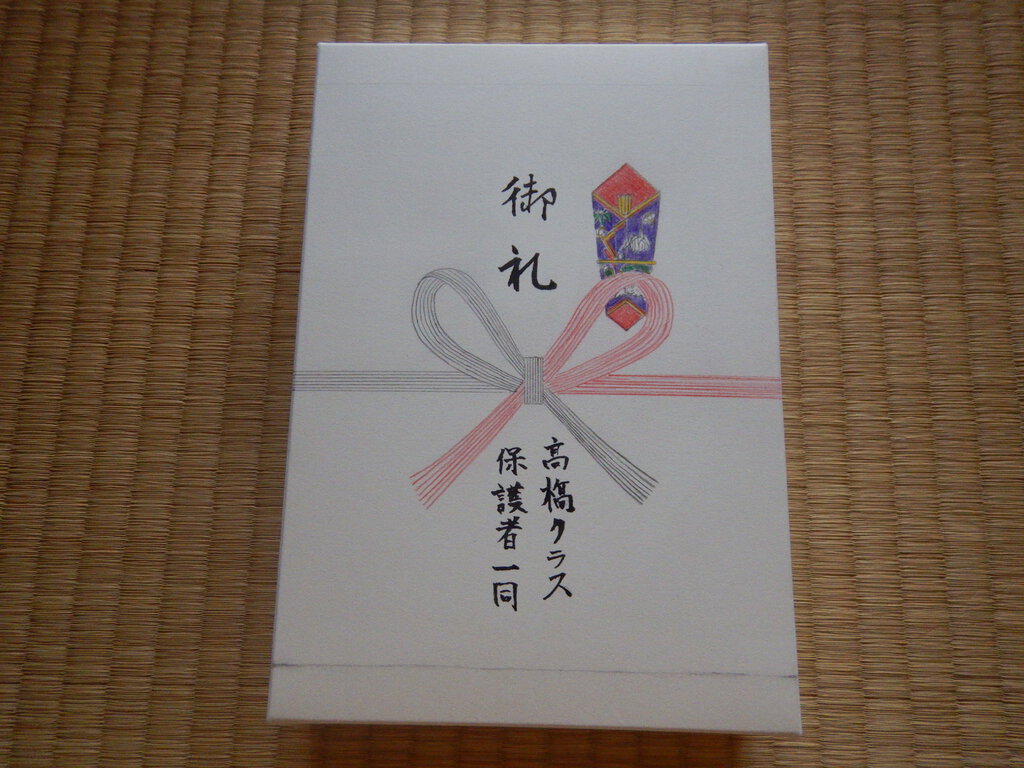 御礼
高橋クラス
保護者一同